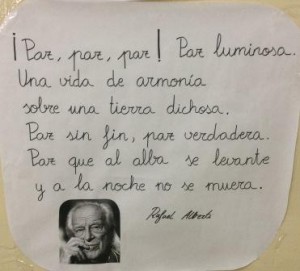 ¡Paz, paz, paz! Paz luminosa.
Una vida de armonía
sobre una tierra dichosa.
Paz sin fin, paz verdadera.
Paz que al alba se levante
y a la noche no se muera.
Rafael Alberti